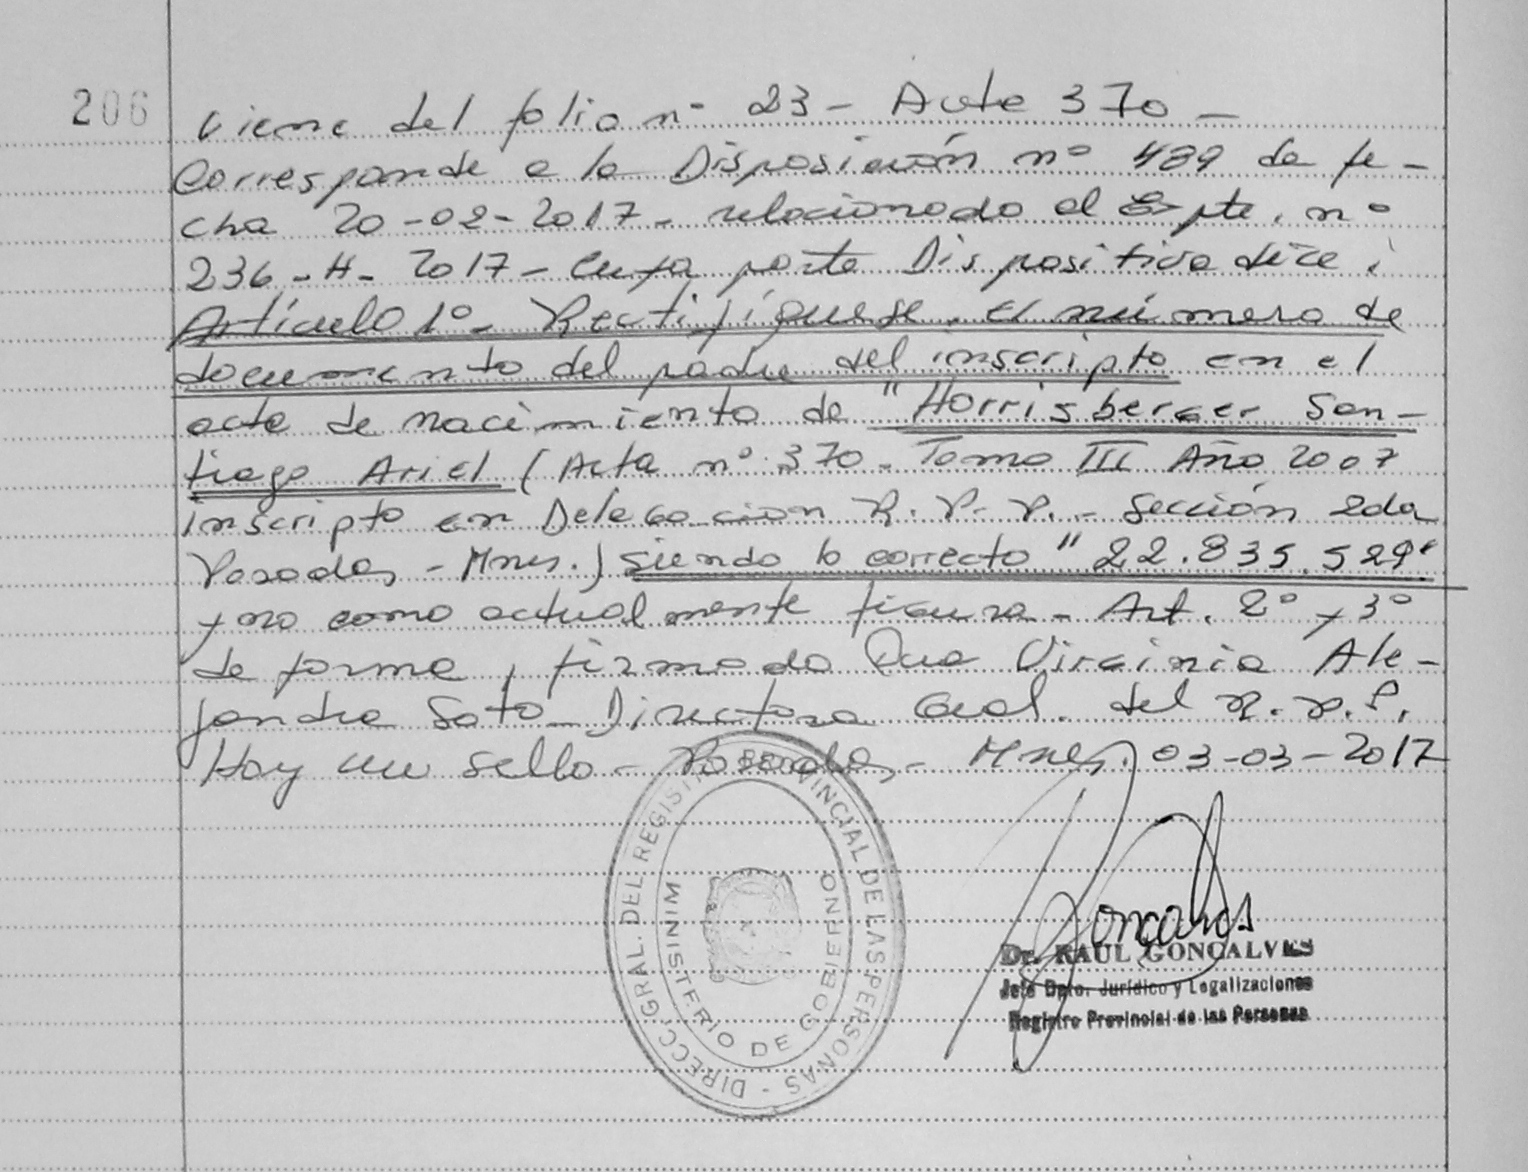 206
Viene del folio nº 23 - Acta 370 -
Corresponde a la Disposición nº 489 de fe-
cha 20-02-2017- relacionado al Expte. nº
236-H-2017- Cuya parte Dispositiva dice:
Artículo 1º- Rectifíquese el número de
documento del padre del inscripto en el
acta de nacimiento de "Horrisberger San-
tiago Ariel (Acta nº 370- Tomo III Año 2007
inscripto en Delegacion R.P.P.- Sección 2da
Posadas - Mnes.) siendo lo correcto "22.835.529"
y no como actualmente figura- Art. 2º y 3º
de forma, firmado Dra Virginia Ale-
jandra Soto- Directora Gral. del R.P.P.
Hay un sello- Posadas- Mnes. 03-03-2017
DIRECC. GRAL. DEL REGISTRO PROVINCIAL DE LAS PERSONAS -
MINISTERIO DE GOBIERNO
Goncalves
Dr. RAUL GONCALVES
Jefe Dpto. Jurídico y Legalizaciones
Registro Provincial de las Personas